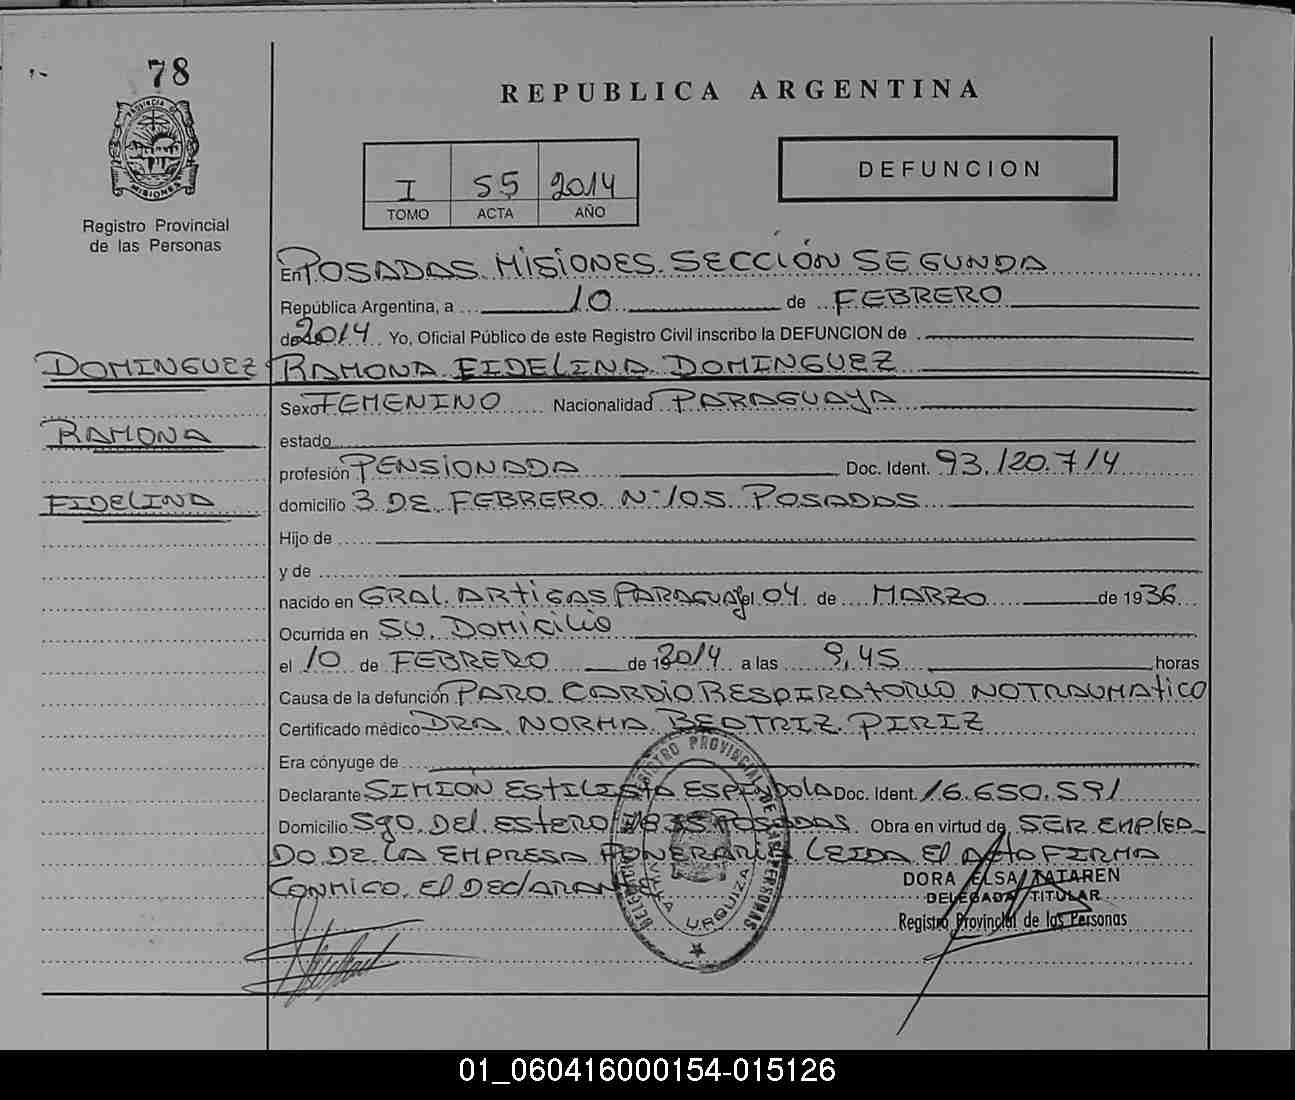 78
PROVINCIA DE MISIONES
Registro Provincial
de las Personas
REPUBLICA ARGENTINA
I 55 2014
TOMO ACTA AÑO
DEFUNCION
En POSADAS. MISIONES. SECCIÓN SEGUNDA
República Argentina, a 10 de FEBRERO
de 2014. Yo, Oficial Público de este Registro Civil inscribo la DEFUNCION de
DOMINGUEZ RAMONA FIDELINA DOMINGUEZ
Sexo FEMENINO Nacionalidad PARAGUAYA
RAMONA
estado
profesión PENSIONADA Doc. Ident. 93.120.714
FIDELINA domicilio 3 DE FEBRERO Nº 105 POSADAS
Hijo de
y de
nacido en GRAL. ARTIGAS PARAGUAY el 04 de MARZO de 1936
Ocurrida en SU DOMICILIO
el 10 de FEBRERO de 192014 a las 9,45 horas
Causa de la defunción PARO CARDIO RESPIRATORIO NO TRAUMATICO
Certificado médico DRA. NORMA BEATRIZ PIRIZ
Era cónyuge de
Declarante SIMION ESTILISTA ESPAÑOLA Doc. Ident. 16.650.591
Domicilio Sgo. Del Estero Posadas. Obra en virtud de SER EMPLEA-
DO DE LA EMPRESA FUNERARIA LEIDA EL ACTA FIRMA
CONMIGO EL DECLARANTE
DORA ELSA TATAREN
DELEGADA TITULAR
Registro Provincial de las Personas
REGISTRO PROVINCIAL DE LAS PERSONAS
URQUIZA
01_060416000154-015126